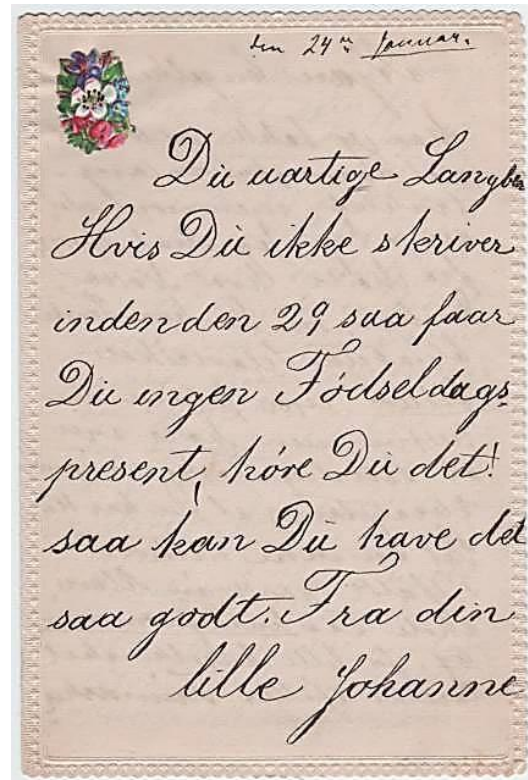 den 24de Januar.
Du uartige Langben
Hvis Du ikke skriver
inden den 29 saa faar
Du ingen Födseldags-
present, höre Du det!
saa kan Du have det
saa godt. Fra din
lille Johanne